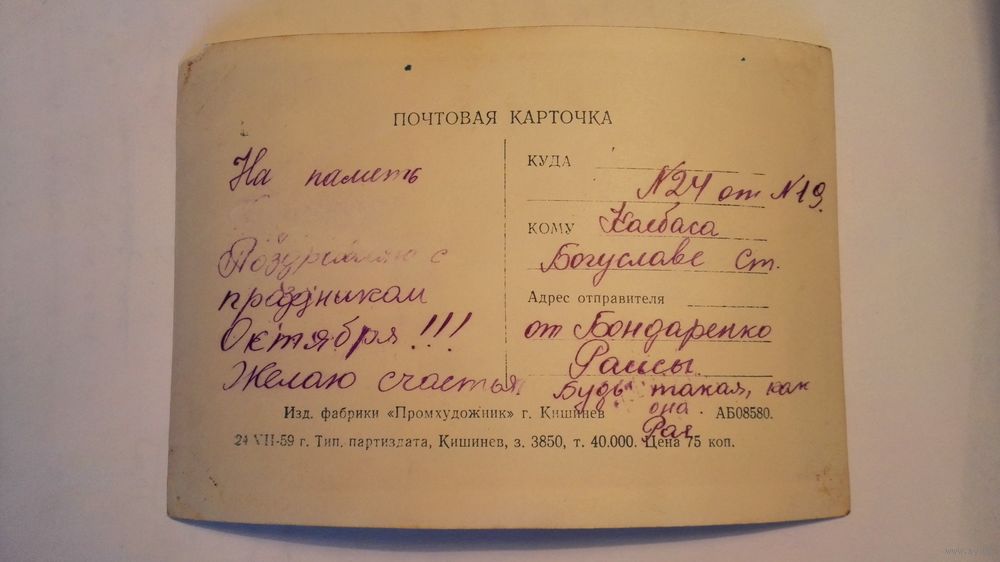 ПОЧТОВАЯ КАРТОЧКА
На паметь
Поздравляю с
праздником
Октября!!!
Желаю счастья.
КУДА
№24 от №19.
КОМУ Колбаса
Богуславе Ст.
Адрес отправителя
от Бондаренко
Раисы.
Будь такая, как
она.
Рая
Изд. фабрики «Промхудожник» г. Кишинев АБ08580.
24 VII-59 г. Тип. партиздата, Кишинев, з. 3850, т. 40.000. Цена 75 коп.